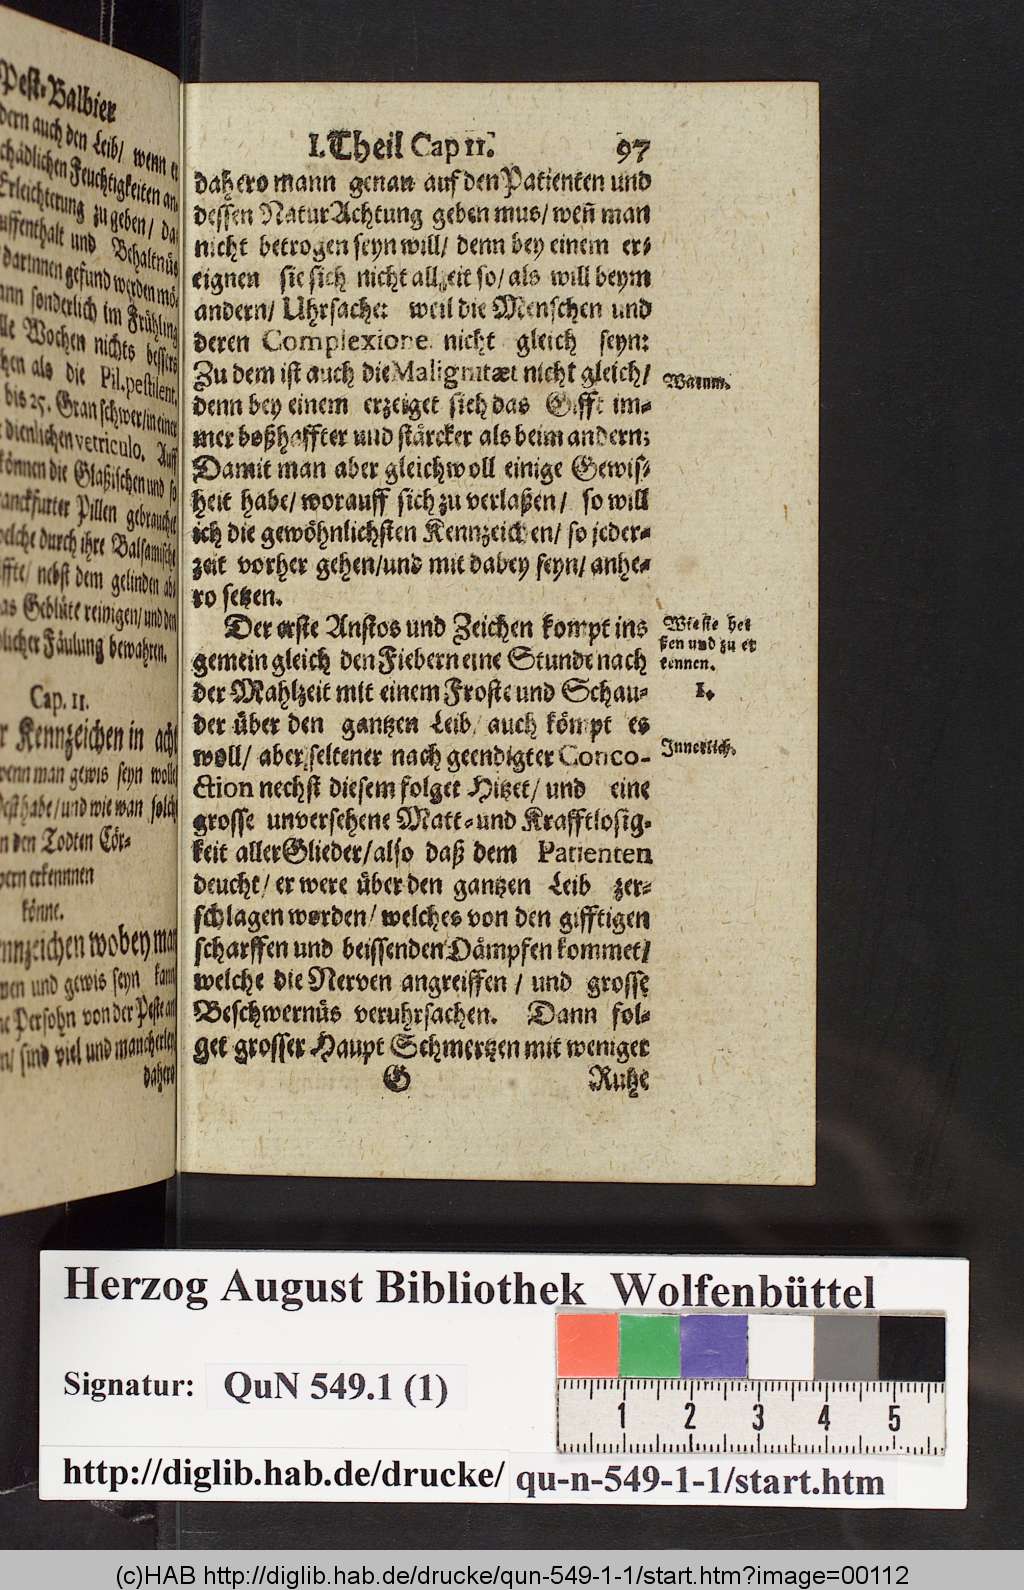 Pest-Balbier
dern auch den Leib/ wenn er
schädlichen Feuchtigkeiten an-
Erleichterung zu geben/ da-
uffenthalt und Behaltnüs
darinnen gefund werden mö-
ann sonderlich im Frühling
lle Wochen nichts bessers
hen als die Pil. pestilent.
bis 25. Gran schwer/in einer
dienlichen vetriculo. Auff
können die Glaßischen und so
ranckfurter Pillen gebrauchet
welche durch ihre Balsamische
ffte/ nebst dem gelinden ab-
as Geblüte reinigen/und den
licher Fäulung bewahren.
Cap. 11.
r Kennzeichen in acht
wenn man gewis seyn wolle
Pest habe/und wie man solch
n den Todten Cör-
pern erkennnen
könne.
nnzeichen wobey man
wen und gewis seyn kann
ne Persohn von der Peste an-
n/ sind viel und mancherley
dahero
I. Theil Cap 11.
97
dahero mann genau auf den Patienten und
dessen Natur Achtung geben mus/ weñ man
nicht betrogen seyn will/ denn bey einem er-
eignen sie sich nicht allzeit so/ als will beym
andern/ Uhrsache: weil die Menschen und
deren Complexione nicht gleich seyn:
Zu dem ist auch die Malignitæt nicht gleich/
Warum.
denn bey einem erzeiget sich das Gifft im-
mer boßhaffter und stärcker als beim andern;
Damit man aber gleichwoll einige Gewis-
heit habe/ worauff sich zu verlaßen/ so will
ich die gewöhnlichsten Kennzeichen/ so jeder-
zeit vorher gehen/und mit dabey seyn/ anhe-
ro setzen.
Der erste Anstos und Zeichen kompt ins
Wie sie hei
gemein gleich den Fiebern eine Stunde nach
ßen und zu er
kennen.
der Mahlzeit mit einem Froste und Schau-
1.
der über den gantzen Leib/ auch kömpt es
woll/ aber seltener nach geendigter Conco-
Innerlich.
ction nechst diesem folget Hitzet/ und eine
grosse unversehene Matt- und Krafftlosig-
keit aller Glieder/also daß dem Patienten
deucht/ er were über den gantzen Leib zer-
schlagen worden/ welches von den gifftigen
scharffen und beissenden Dämpfen kommet/
welche die Nerven angreiffen / und grosse
Beschwernüs veruhrsachen. Dann fol-
get grosser Haupt Schmertzen mit weniger
G
Ruhe
Herzog August Bibliothek Wolfenbüttel
Signatur: QuN 549.1 (1)
1 2 3 4 5
http://diglib.hab.de/drucke/ qu-n-549-1-1/start.htm
(c)HAB http://diglib.hab.de/drucke/qun-549-1-1/start.htm?image=00112